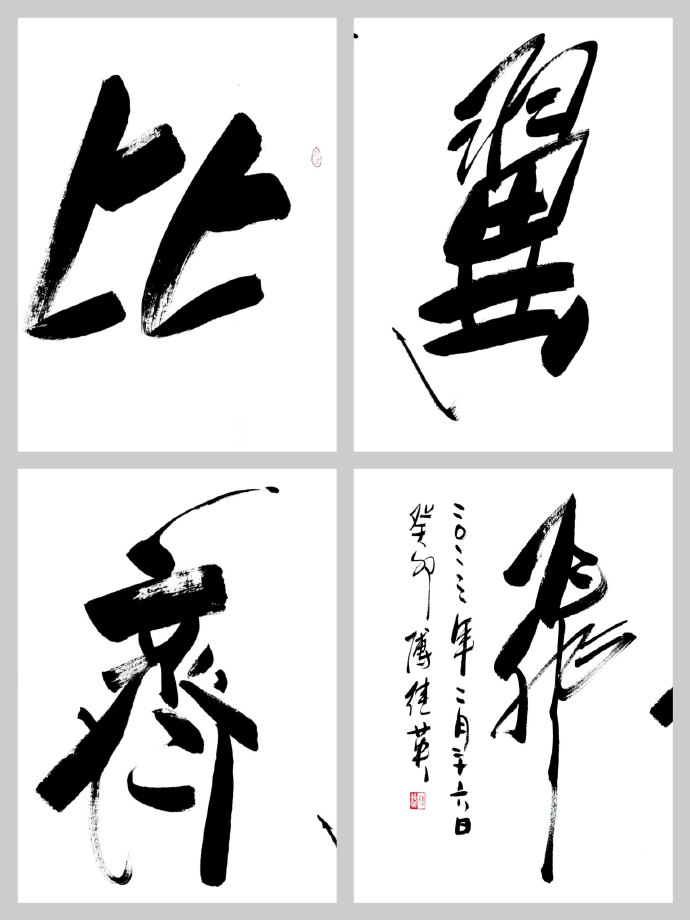 比
翼
齊
飛
二〇二三年二月二十六日
癸卯 傅佳英